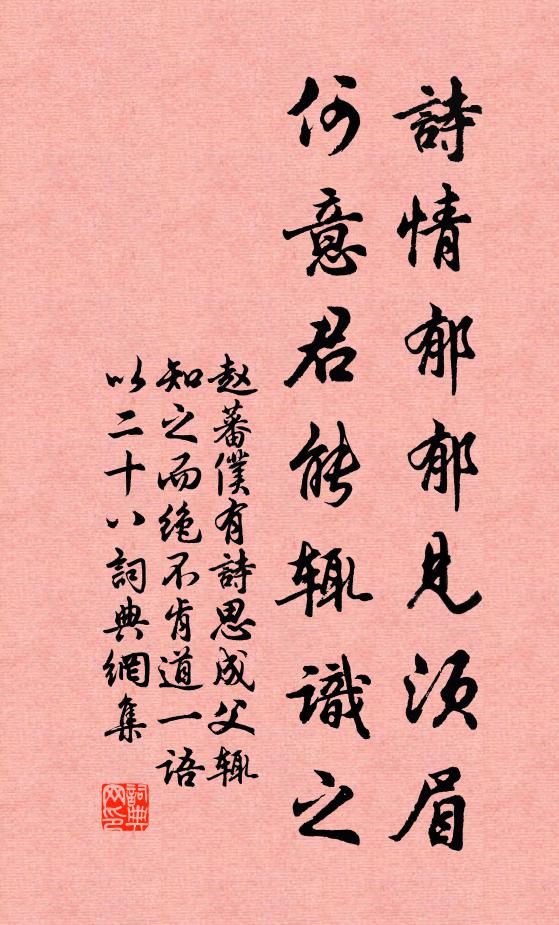 詩情郁郁見須眉
何意君能辄識之
赵蕃僕有詩思成父辄
知之而绝不肯道一语
以二十八詞典網集
詞典
网印